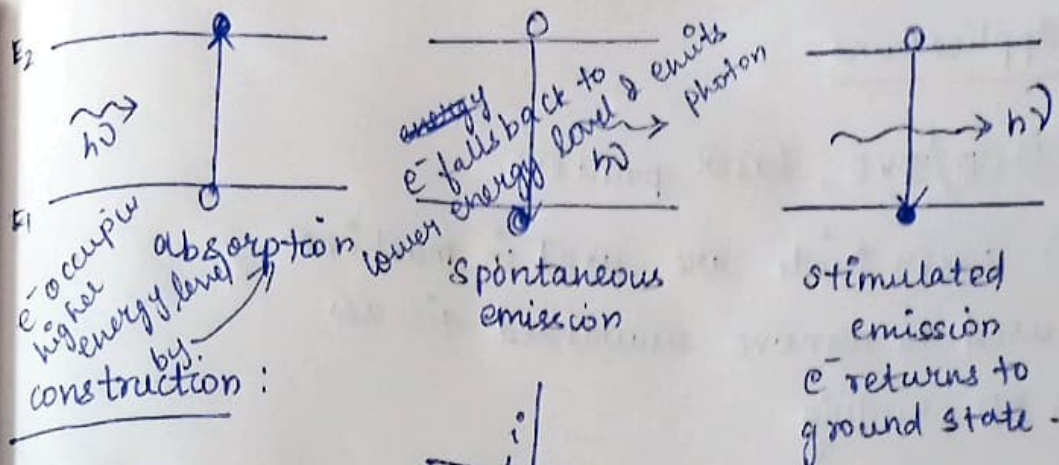 E2
hν
E1
e⁻ occupies
higher
energy level
by
absorption
e⁻ falls back to
lower energy level & emits
photon
hν
spontaneous
emission
hν
stimulated
emission
e⁻ returns to
ground state.
construction :
i